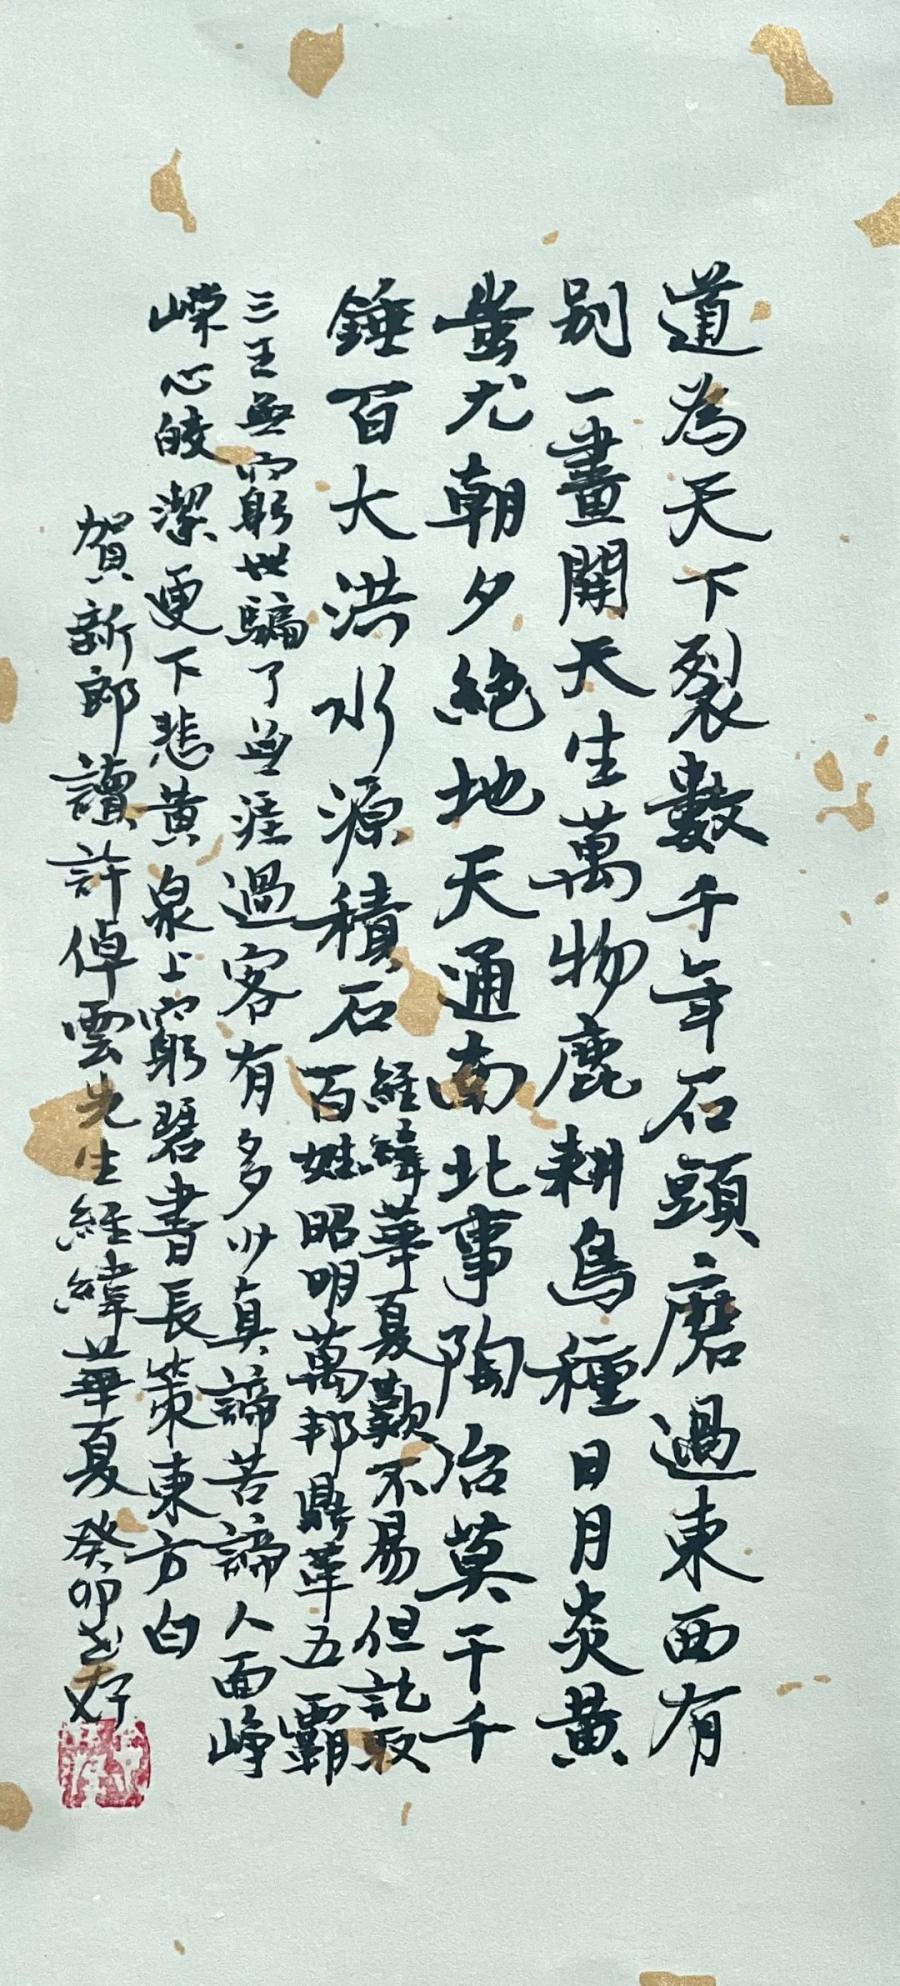 道為天下裂數千年石頭磨過東西有
別一畫開天生萬物鹿耕鳥種日月炎黃
蚩尤朝夕絕地天通南北事陶冶莫干千
錘百大洪水源積石
經緯華夏歎不易但記取
百姓昭明萬邦鼎革五霸
三王無窮世騙了無涯過客有多少真諦苦諦人面崢
嶸心皎潔更下悲黃泉上窮碧書長策東方白
賀新郎讀許倬雲先生經緯華夏癸卯